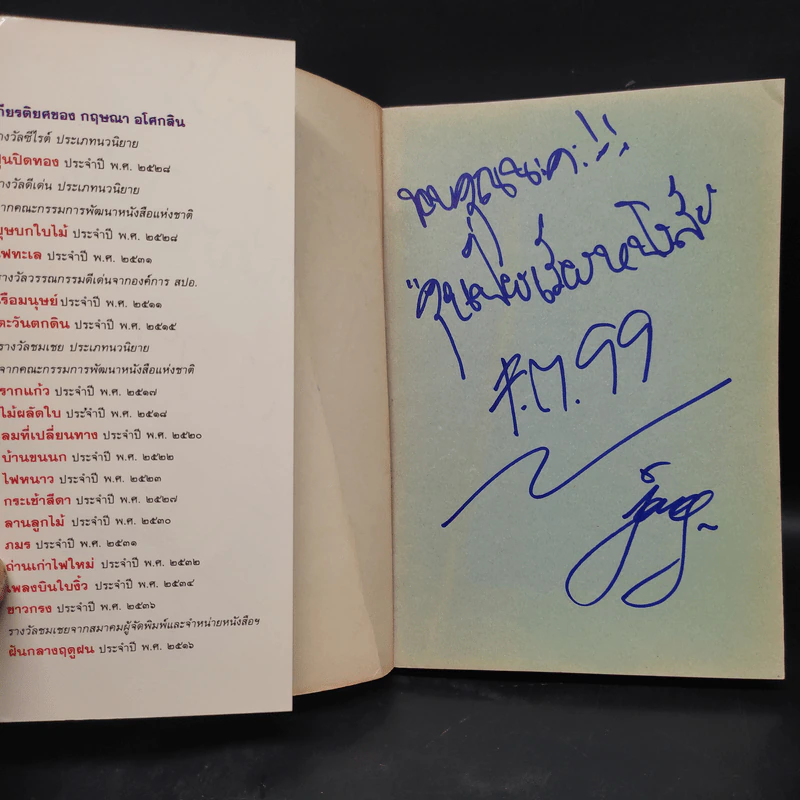 กียรติยศของ กฤษณา อโศกสิน
างวัลซีไรต์ ประเภทนวนิยาย
ปูนปิดทอง ประจำปี พ.ศ. ๒๕๒๘
างวัลดีเด่น ประเภทนวนิยาย
ากคณะกรรมการพัฒนาหนังสือแห่งชาติ
บุษบกใบไม้ ประจำปี พ.ศ. ๒๕๒๘
ไฟทะเล ประจำปี พ.ศ. ๒๕๓๑
างวัลวรรณกรรมดีเด่นจากองค์การ สปอ.
เรือมนุษย์ ประจำปี พ.ศ. ๒๕๑๑
ตะวันตกดิน ประจำปี พ.ศ. ๒๕๑๕
รางวัลชมเชย ประเภทนวนิยาย
จากคณะกรรมการพัฒนาหนังสือแห่งชาติ
รากแก้ว ประจำปี พ.ศ. ๒๕๑๗
ไม้ผลัดใบ ประจำปี พ.ศ. ๒๕๑๘
ลมที่เปลี่ยนทาง ประจำปี พ.ศ. ๒๕๒๐
บ้านขนนก ประจำปี พ.ศ. ๒๕๒๒
ไฟหนาว ประจำปี พ.ศ. ๒๕๒๓
กระเช้าสีดา ประจำปี พ.ศ. ๒๕๒๗
ลานลูกไม้ ประจำปี พ.ศ. ๒๕๓๐
ภมร ประจำปี พ.ศ. ๒๕๓๑
ถ่านเก่าไฟใหม่ ประจำปี พ.ศ. ๒๕๓๒
เพลงบินใบงิ้ว ประจำปี พ.ศ. ๒๕๓๔
ขาวกรง ประจำปี พ.ศ. ๒๕๓๖
รางวัลชมเชยจากสมาคมผู้จัดพิมพ์และจำหน่ายหนังสือฯ
ฝันกลางฤดูฝน ประจำปี พ.ศ. ๒๕๑๖
ขอบคุณนะคะ!!
99